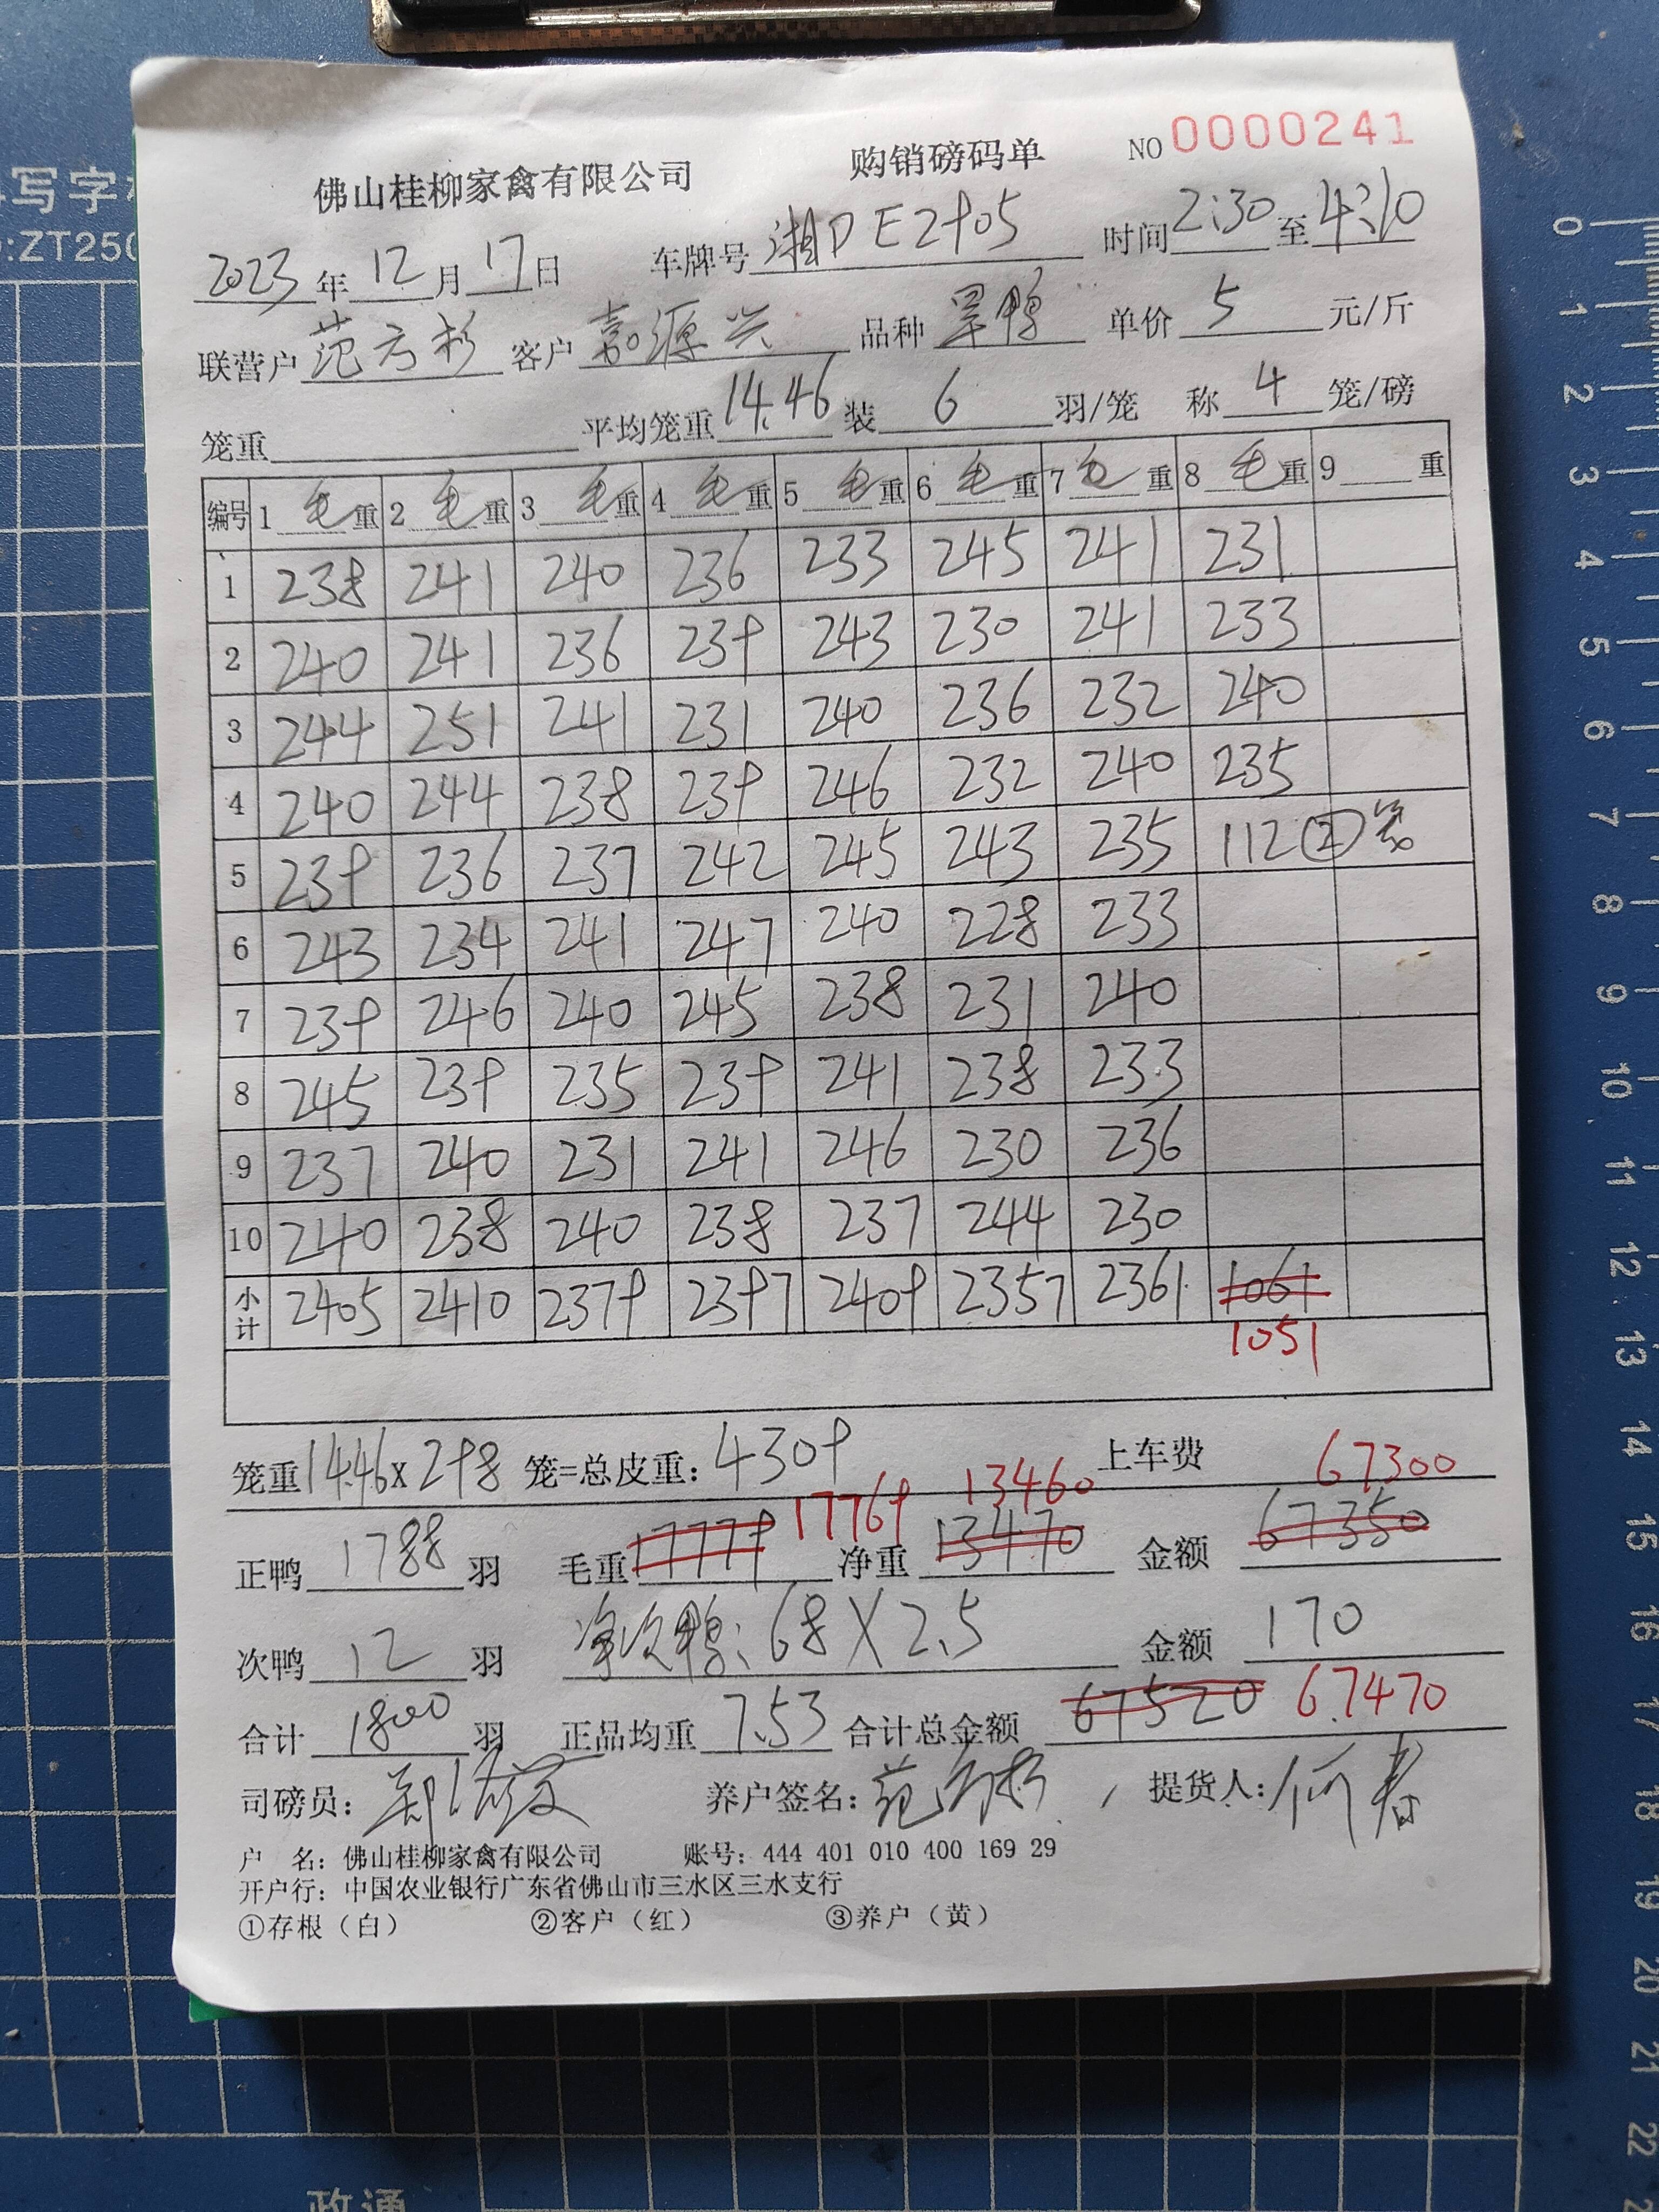 写字
:ZT250
佛山桂柳家禽有限公司 购销磅码单 NO 0000241
2023年12月17日 车牌号 湘D E2905 时间 2:30 至 4:10
联营户 范方杉 客户 嘉源兴 品种 旱鸭 单价 5 元/斤
笼重 平均笼重 14.46 装 6 羽/笼 称 4 笼/磅
编号 1 毛重 2 毛重 3 毛重 4 毛重 5 毛重 6 毛重 7 毛重 8 毛重 9 重
1 238 241 240 236 233 245 241 231
2 240 241 236 239 243 230 241 233
3 244 251 241 231 240 236 232 240
4 240 244 238 239 246 232 240 235
5 239 236 237 242 245 243 235 112 ② 笼
6 243 234 241 247 240 228 233
7 239 246 240 245 238 231 240
8 245 239 235 239 241 238 233
9 237 240 231 241 246 230 236
10 240 238 240 238 237 244 230
小计 2405 2410 2379 2397 2409 2357 2361 1061
1051
笼重 14.46 x 298 笼=总皮重: 4309 上车费 67300
17769 13460
正鸭 1788 羽 毛重 17779 净重 13470 金额 67350
次鸭 12 羽 净次鸭: 68 X 2.5 金额 170
合计 1800 羽 正品均重 7.53 合计总金额 67520 67470
司磅员: 养户签名: 范方杉 提货人: 何春
户 名: 佛山桂柳家禽有限公司 账号: 444 401 010 400 169 29
开户行: 中国农业银行广东省佛山市三水区三水支行
①存根（白） ②客户（红） ③养户（黄）
0
1
2
3
4
5
6
7
8
9
10
11
12
13
14
15
16
17
18
19
20
21
22
政通